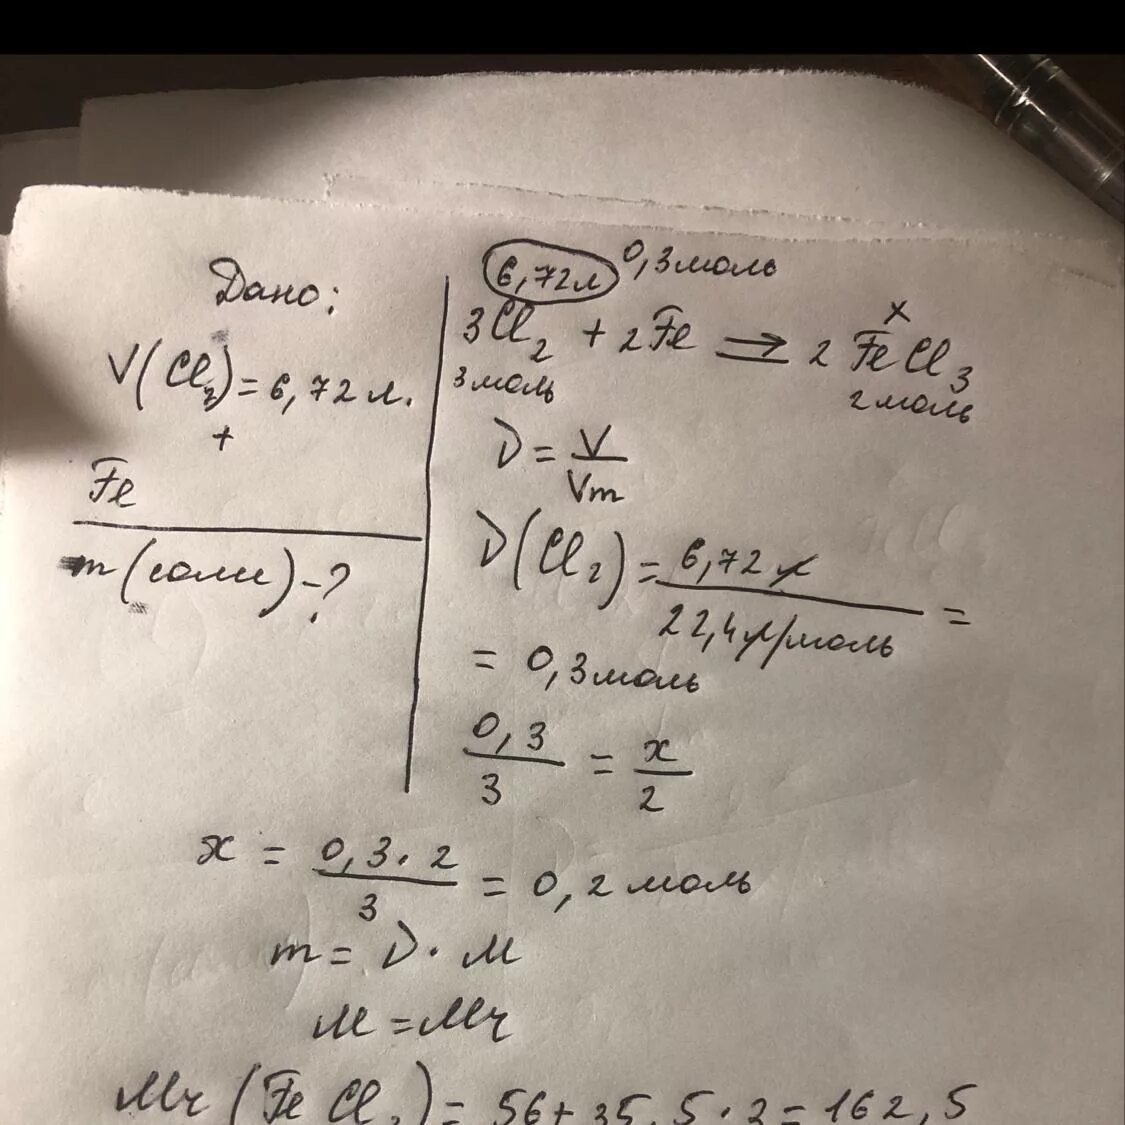 Дано:
V(Cl₂) = 6,72 л.
+
Fe
m(соли) - ?
6,72л 0,3моль
x
3Cl₂ + 2Fe ⟶ 2FeCl₃
3моль 2моль
ν = V/Vm
ν(Cl₂) = 6,72 л / 22,4 л/моль =
= 0,3 моль
0,3/3 = x/2
x = 0,3·2/3 = 0,2 моль
m = ν · M
M = Mr
Mr(FeCl₃) = 56 + 35,5·3 = 162,5